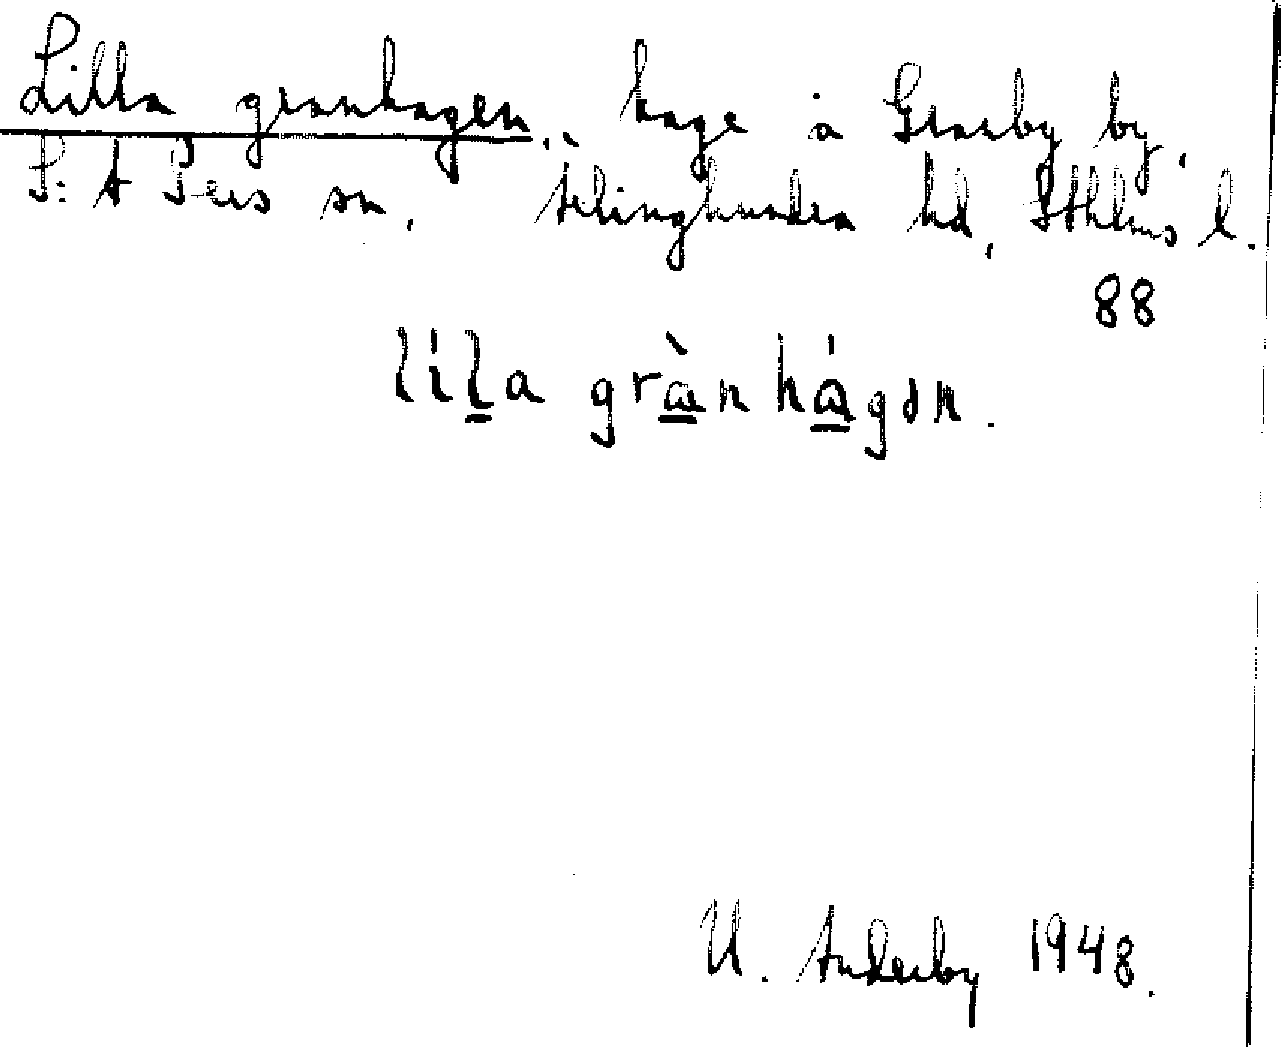 Lilla granhagen, hage å Grarby by,
S:t Pers sn, Ärlinghundra hd, Sthlms l.
88
lílla grànhágən.
U. Anderby 1948.